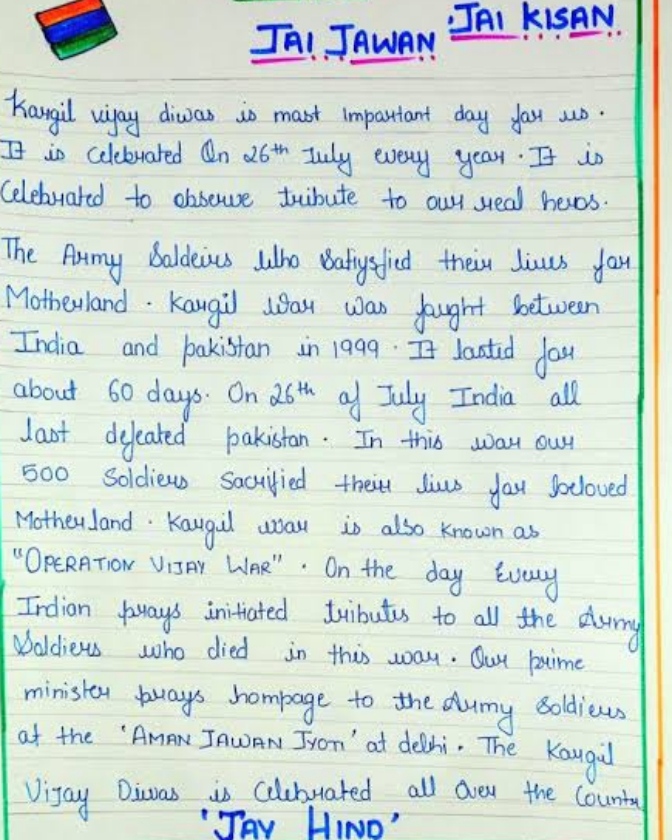 JAI JAWAN JAI KISAN
Kargil vijay diwas is most Important day for us.
It is Celebrated On 26th July every year. It is
Celebrated to observe tribute to our real heros.
The Army Saldeirs Who Satiysfied their lives for
Motherland. Kargil War was fought between
India and pakistan in 1999. It lasted for
about 60 days. On 26th of July India all
last defeated pakistan. In this war our
500 Soldiers Sacrified their lives for beloved
Motherland. Kargil war is also known as
"OPERATION VIJAY WAR". On the day Every
Indian prays initiated tributes to all the Army
Soldiers who died in this war. Our prime
minister prays hompage to the Army Soldiers
at the 'AMAN JAWAN JYOTI' at delhi. The Kargil
Vijay Diwas is Celebrated all Over the Country
'JAY HIND'